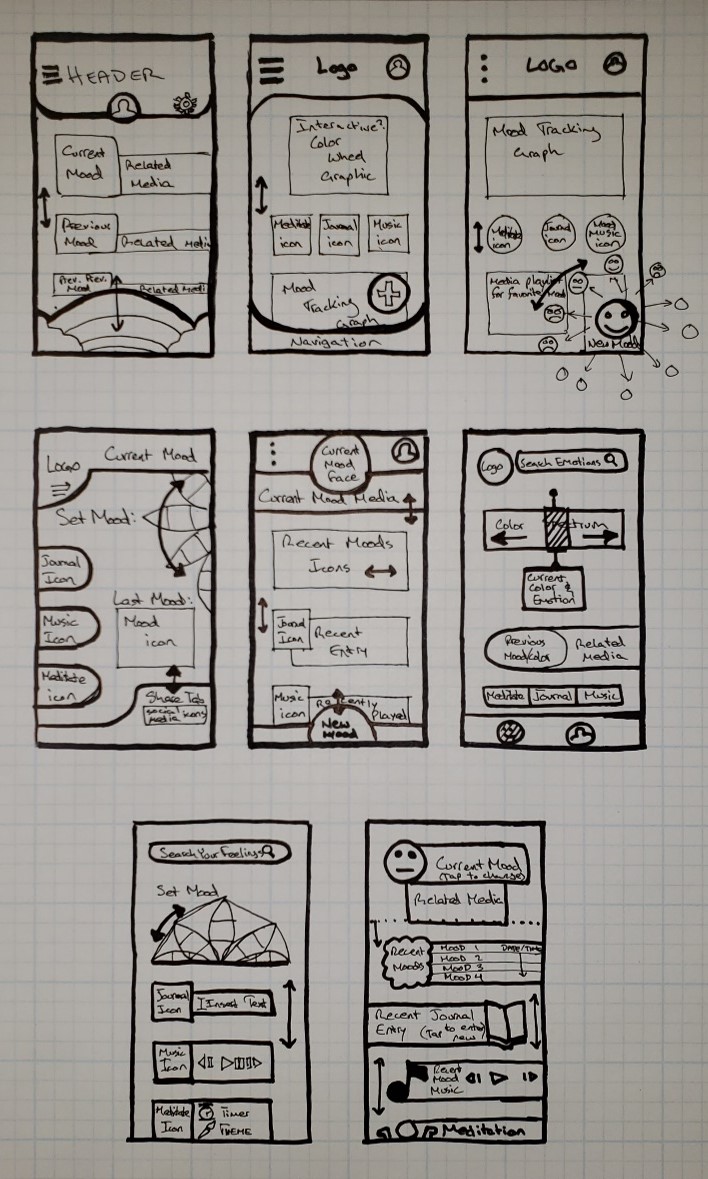 HEADER
Current
Mood
Related
Media
Previous
Mood
Related Media
Prev. Prev.
Mood
Related Medi
Logo
Interactive?
Color
Wheel
Graphic
Meditate
icon
Journal
icon
Music
icon
Mood
Tracking
Graph
Navigation
LOGO
Mood Tracking
Graph
Meditate
icon
Journal
icon
Mood
Music
icon
Media playlist
for favorite mood
New Mood
Logo
Current Mood
Set Mood:
Journal
Icon
Music
Icon
Meditate
icon
Last Mood:
Mood
icon
Share Tab
social
media icons
Current
Mood
Face
Current Mood Media
Recent Moods
Icons
Journal
Icon
Recent
Entry
Music
icon
Recently
Played
New
Mood
Logo
Search Emotions
Color Spectrum
Current
Color &
Emotion
Previous
Mood/Color
Related
Media
Meditate
Journal
Music
Search Your Feelings
Set Mood
Journal
Icon
Insert Text
Music
Icon
Meditate
Icon
Timer
THEME
Current Mood
(Tap to change)
Related Media
Recent
Moods
MOOD 1
DATE/TIME
MOOD 2
MOOD 3
MOOD 4
Recent Journal
Entry (Tap to enter
new)
Recent
Mood
Music
Meditation